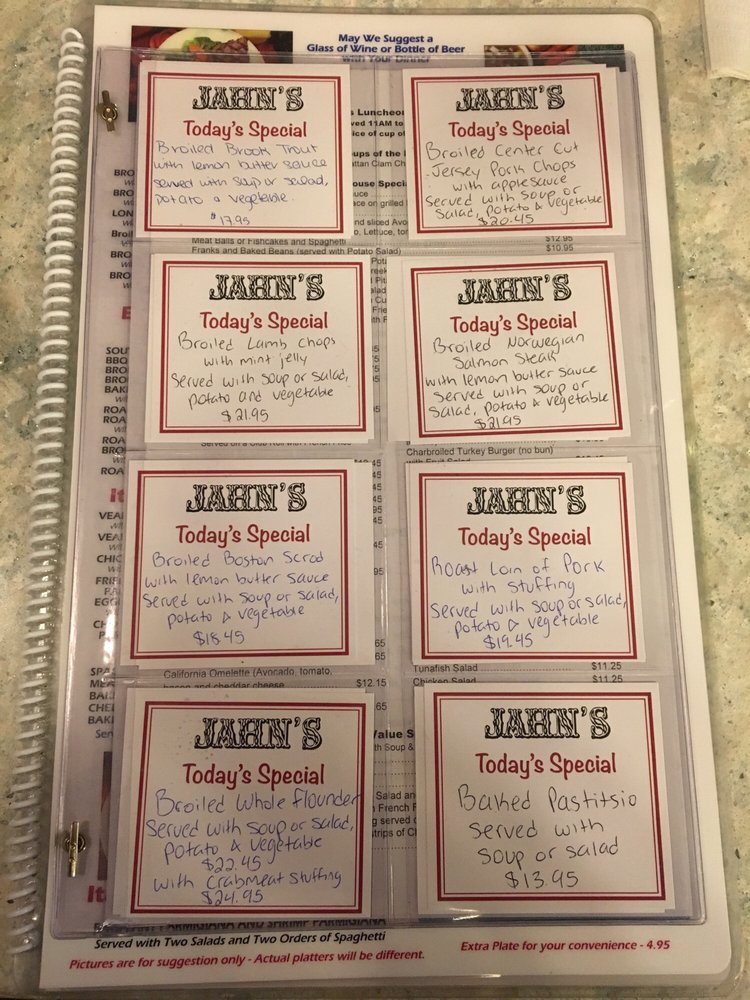 May We Suggest a
Glass of Wine or Bottle of Beer
with Your Dinner
JAHN'S
Today's Special
Broiled Brook Trout
with lemon butter sauce
served with soup or salad,
potato & vegetable.
$17.95
JAHN'S
Today's Special
Broiled Center Cut
Jersey Pork Chops
with applesauce
Served with soup or
Salad, Potato & Vegetable
$20.45
Meat Balls or Fishcakes and Spaghetti
$12.95
Franks and Baked Beans (served with Potato Salad)
$10.95
JAHN'S
Today's Special
Broiled Lamb Chops
with mint jelly
Served with soup or salad,
potato and vegetable
$21.95
JAHN'S
Today's Special
Broiled Norwegian
Salmon Steak
with lemon butter sauce
Served with soup or
Salad, potato & vegetable
$21.95
Charbroiled Turkey Burger (no bun)
with Fruit Salad
JAHN'S
Today's Special
Broiled Boston Scrod
with lemon butter sauce
Served with soup or salad,
potato & vegetable
$18.45
JAHN'S
Today's Special
Roast Loin of Pork
with stuffing
Served with soup or salad,
potato & vegetable
$19.45
California Omelette (Avocado, tomato,
bacon and cheddar cheese
$12.15
Tunafish Salad
$11.25
Chicken Salad
$11.25
JAHN'S
Today's Special
Broiled Whole Flounder
Served with soup or salad,
potato & vegetable
$22.45
with Crabmeat Stuffing
$24.95
JAHN'S
Today's Special
Baked Pastitsio
served with
soup or salad
$13.95
PARMIGIANA AND SHRIMP PARMIGIANA
Served with Two Salads and Two Orders of Spaghetti
Extra Plate for your convenience - 4.95
Pictures are for suggestion only - Actual platters will be different.